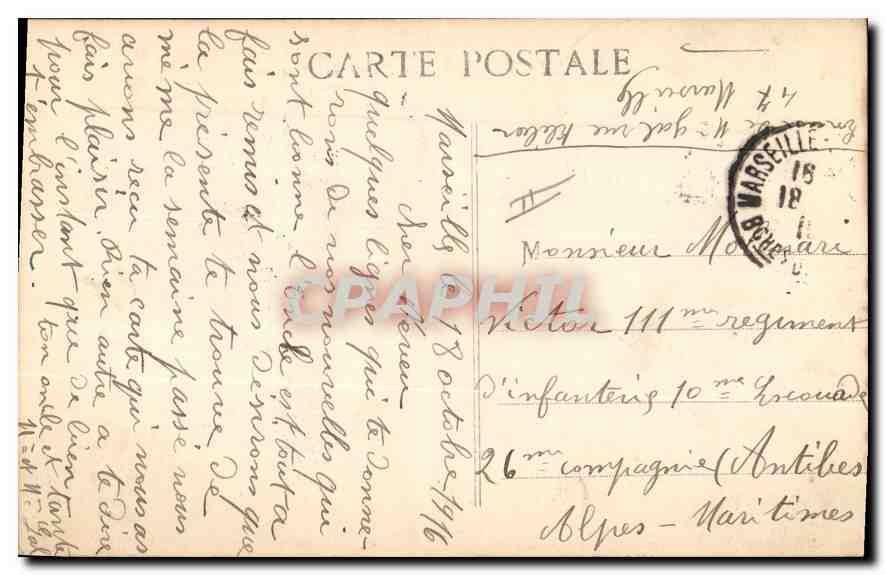 CARTE POSTALE
Marseille le 18 octobre 1916
Cher Neveu
quelques lignes qui te donne-
rons de nos nouvelles qui
sont bonne l'oncle est tout a
fais remis et nous desirons que
la présente te trouve de
même la semaine passé nous
avons recu ta carte qui nous as
fais plaisir. Rien autre a te dire
pour l'instant que de bien
t'embrasser.
ton oncle et tante
rue Kleber
47 Marseille
MARSEILLE
16
18
Monsieur
Victor 111me regiment
d'infanterie 10me Escouade
26me compagnie (Antibes
Alpes - Maritimes
CPAPHIL